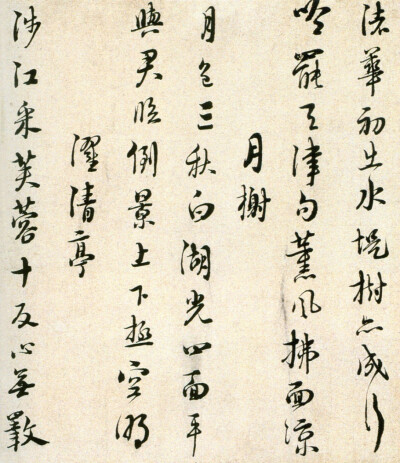 渚華初出水堤樹亦成行
吟罷天津句薰風拂面涼
月榭
月色三秋白湖光四面平
與君臨倒景上下極空明
濯清亭
涉江采芙蓉十反心無斁